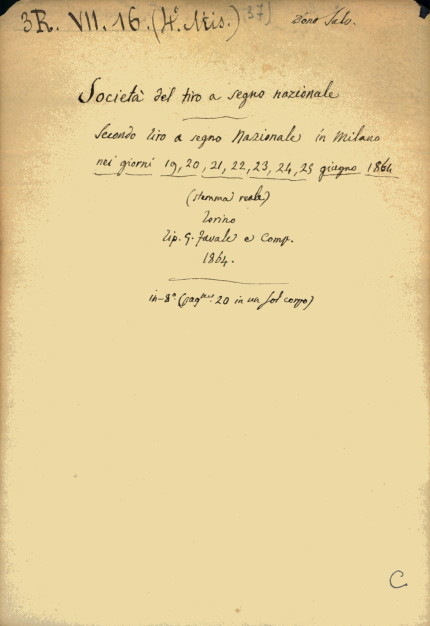 3R. VII. 16. (4.° Mis.) 37)
Dono Salo.
Società del tiro a segno nazionale
Secondo tiro a segno Nazionale in Milano
nei giorni 19, 20, 21, 22, 23, 24, 25 giugno 1864
(stemma reale)
Torino
Tip. G. Favale e Comp.
1864.
in-8° (pag.ne 20 in un sol corpo)
C